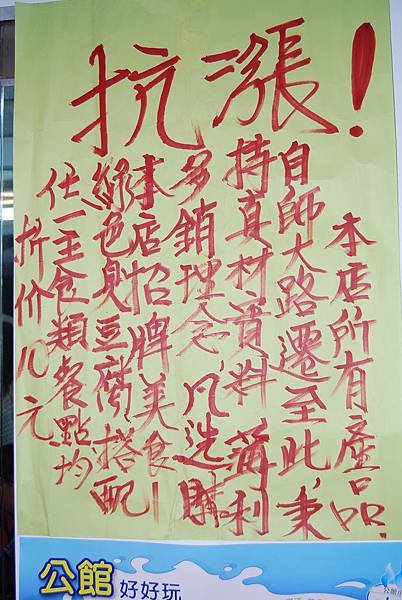 抗漲！
本店所有產品，
自師大路遷至此，秉
持真材實料薄利
多銷理念，凡選購
本店招牌美食—
綠色臭豆腐搭配
任一主食類餐點均
折价10元
公館好好玩